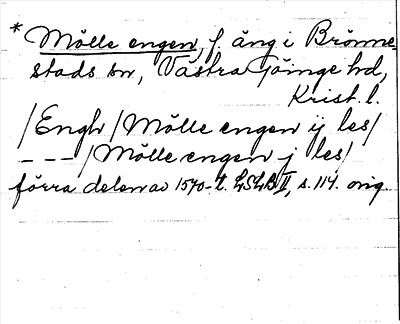 * Mölle engen, f. äng i Brönne-
stads sn, Västra Göinge hd,
Krist. l.
/Engh/Mölle engen ij les/
- - -/Mölle engen j les/
förra delen av 1570-t. LSLB II, s. 114. orig.